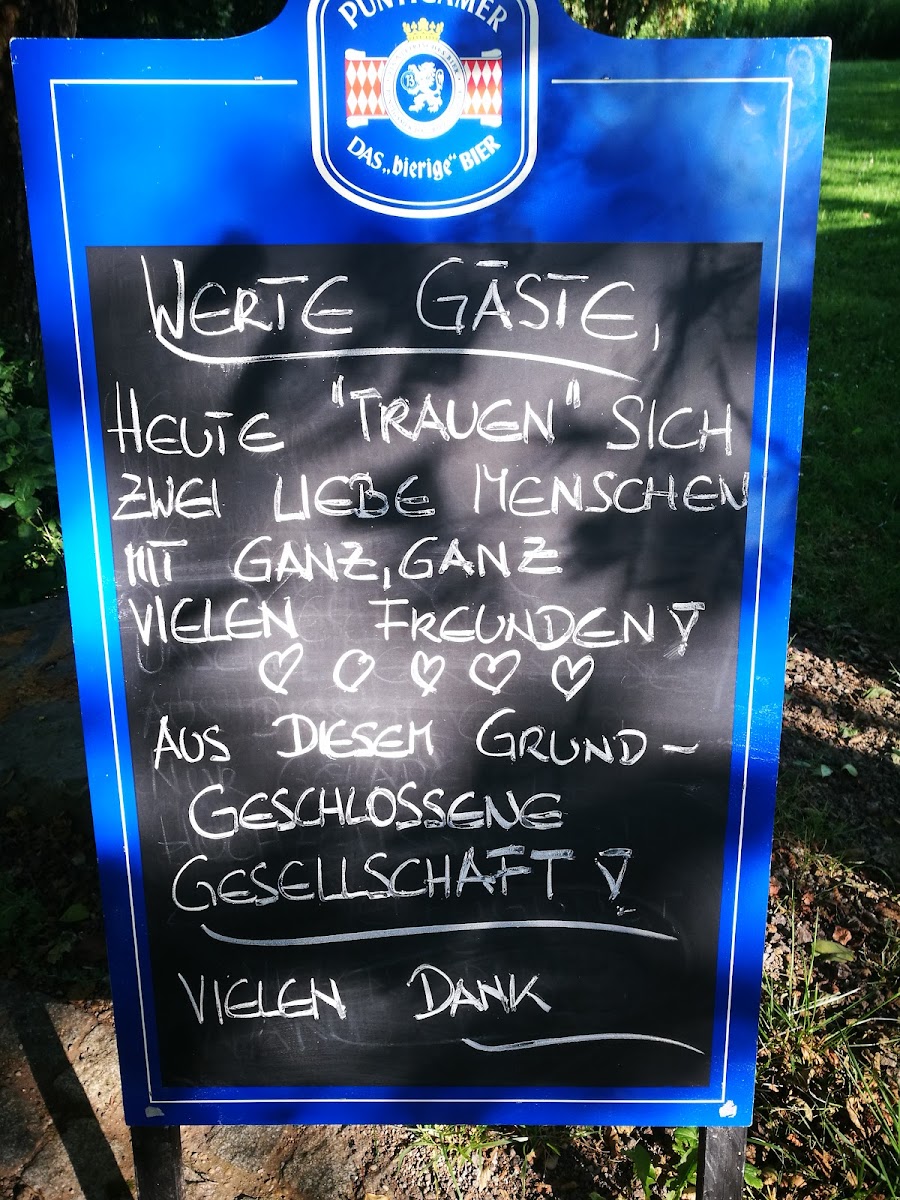 PUNTIGAMER
DAS „bierige“ BIER
WERTE GÄSTE,
HEUTE "TRAUEN" SICH
ZWEI LIEBE MENSCHEN
MIT GANZ, GANZ
VIELEN FREUNDEN!
AUS DIESEM GRUND-
GESCHLOSSENE
GESELLSCHAFT!
VIELEN DANK